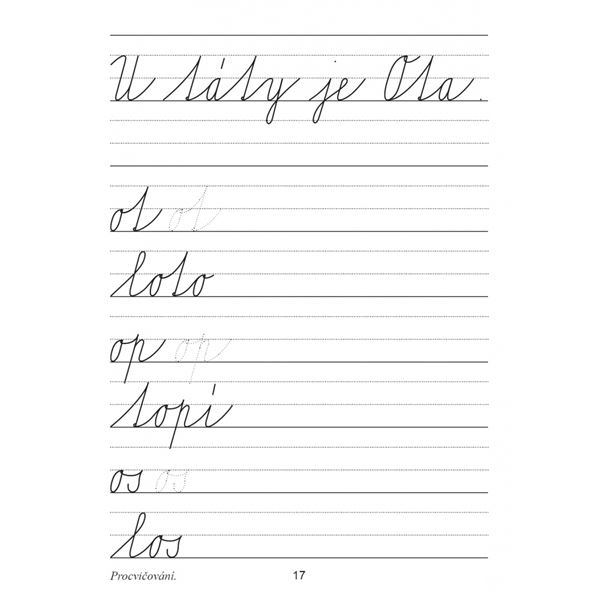 U táty je Ota.
ot ot
loto
op op
topí
os os
los
Procvičování. 17